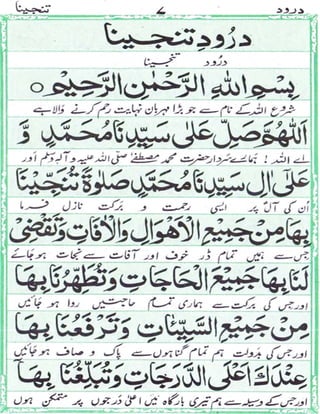 درود ۷ تنجینا
درُودِ تنجینا
درُود تنجینا
بِسْمِ اللهِ الرَّحْمٰنِ الرَّحِيْمِ ○
شروع اللہ کے نام سے جو بڑا مہربان نہایت رحم کرنے والا ہے
اَللّٰهُمَّ صَلِّ عَلٰى سَيِّدِنَا مُحَمَّدٍ وَّ
اے اللہ ! ہمارے سردار حضرت محمد مصطفٰے صلی اللہ علیہ وآلہ وسلم اور
عَلٰٓى اٰلِ سَيِّدِنَا مُحَمَّدٍ صَلٰوةً تُنَجِّيْنَا
ان کی آل پر ایسی رحمت و برکت نازل فرما
بِهَا مِنْ جَمِيْعِ الْاَهْوَالِ وَالْاٰفَاتِ وَتَقْضِىْ
جس سے ہمیں تمام ڈر خوف اور آفات سے نجات ہو جائے
لَنَا بِهَا جَمِيْعَ الْحَاجَاتِ وَتُطَهِّرُنَا بِهَا
اور جس کی برکت سے ہماری تمام حاجتیں روا ہو جائیں
مِنْ جَمِيْعِ السَّيِّئَاتِ وَتَرْفَعُنَا بِهَا
اور جس کی بدولت ہم تمام گناہوں سے پاک و صاف ہو جائیں
عِنْدَكَ اَعْلَى الدَّرَجَاتِ وَتُبَلِّغُنَا بِهَا
اور جس کے وسیلہ سے ہم تیری بارگاہ میں اعلٰی درجوں پر متمکن ہوں